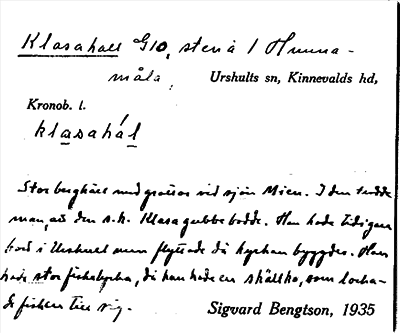 Klasahall G10, sten å 1 Humma-
måla,
Urshults sn, Kinnevalds hd,
Kronob. l.
klasahál
Stor berghäll med grottor vid sjön Mien. I den trodde
man, att den s.k. Klasagubbe bodde. Han hade tidigare
bott i Urshult men flyttade då kyrkan byggdes. Han
hade stor fiskelycka, då han hade en skällko, som locka-
de fisken till sig.
Sigvard Bengtson, 1935